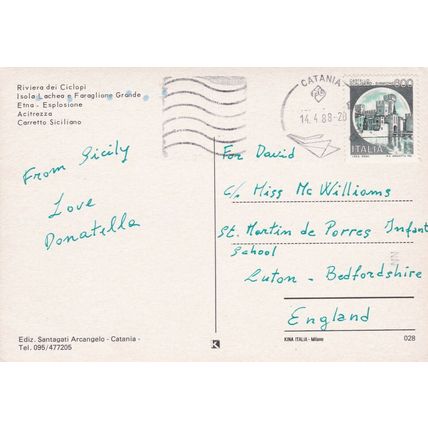 Riviera dei Ciclopi
Isola Lachea e Faraglione Grande
Etna - Esplosione
Acitrezza
Carretto Siciliano
CATANIA
14.4.89-20
600
ITALIA
From Sicily
Love
Donatella
For David
c/o Miss McWilliams
St. Martin de Porres Infant
School
Luton - Bedfordshire
England
Ediz. Santagati Arcangelo - Catania -
Tel. 095/477205
K
KINA ITALIA - Milano
028